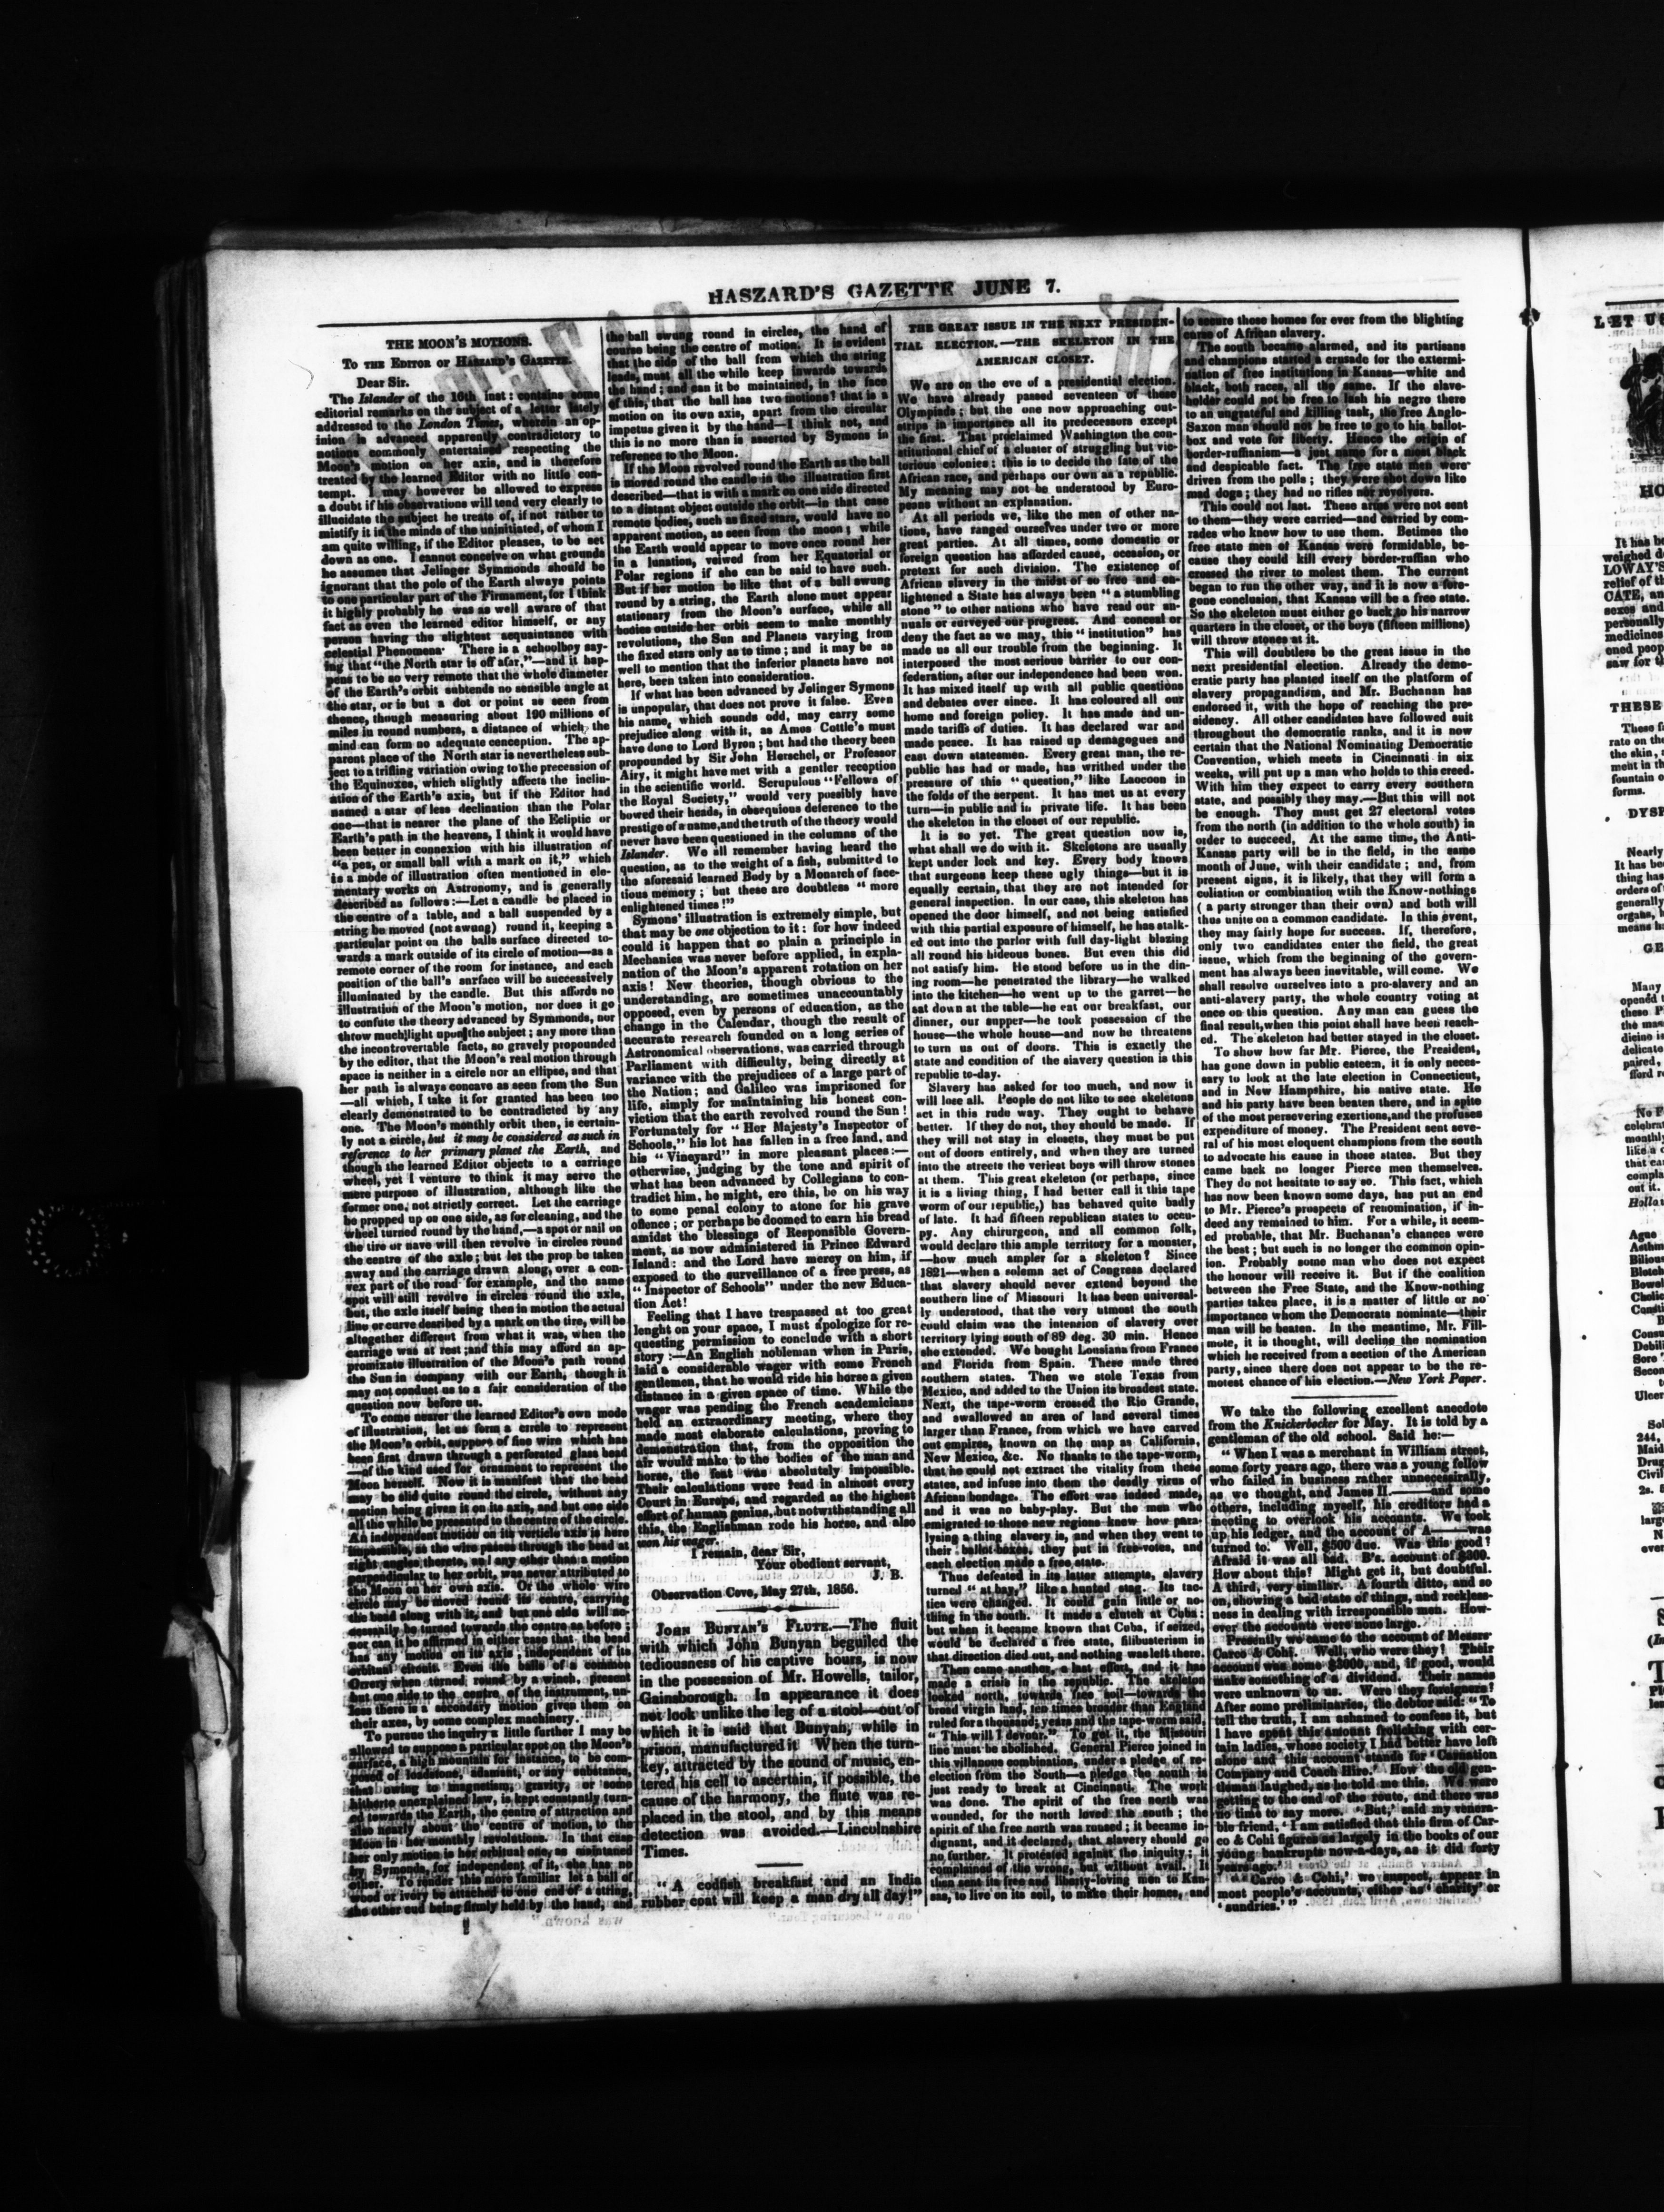 HASZARD'S GAZETTE JUNE 7.
THE MOON'S MOTIONS.
To the Editor of Haszard's Gazette.
Dear Sir.
The Islander of the 16th inst: contains some
editorial remarks on the subject of a letter lately
addressed to the London Times, wherein an op-
inion is advanced apparently contradictory to
notions commonly entertained respecting the
Moon's motion on her axis, and is therefore
treated by the learned Editor with no little con-
tempt. I may however be allowed to express
a doubt if his observations will tend very clearly to
illucidate the subject he treats of, if not rather to
mistify it in the minds of the uninitiated, of whom I
am quite willing, if the Editor pleases, to be set
down as one. I cannot conceive on what grounds
he assumes that Jelinger Symmonds should be
ignorant that the pole of the Earth always points
to one particular part of the Firmament, for I think
it highly probably he was as well aware of that
fact as even the learned editor himself, or any
person having the slightest acquaintance with
celestial Phenomena. There is a schoolboy say-
ing that "the North star is off afar,"—and it hap-
pens to be so very remote that the whole diameter
of the Earth's orbit subtends no sensible angle at
the star, or is but a dot or point as seen from
thence, though measuring about 190 millions of
miles in round numbers, a distance of which, the
mind can form no adequate conception. The ap-
parent place of the North star is nevertheless sub-
ject to a trifling variation owing to the precession of
the Equinoxes, which slightly affects the inclin-
ation of the Earth's axis, but if the Editor had
named a star of less declination than the Polar
one—that is nearer the plane of the Ecliptic or
Earth's path in the heavens, I think it would have
been better in connexion with his illustration of
"a pea, or small ball with a mark on it," which
is a mode of illustration often mentioned in ele-
mentary works on Astronomy, and is generally
described as follows:—Let a candle be placed in
the centre of a table, and a ball suspended by a
string be moved (not swung) round it, keeping a
particular point on the balls surface directed to-
wards a mark outside of its circle of motion—as a
remote corner of the room for instance, and each
position of the ball's surface will be successively
illuminated by the candle. But this affords no
illustration of the Moon's motion, nor does it go
to confute the theory advanced by Symmonds, nor
throw much light upon the subject; any more than
the incontrovertable facts, so gravely propounded
by the editor, that the Moon's real motion through
space is neither in a circle nor an ellipse, and that
her path is always concave as seen from the Sun
—all which, I take it for granted has been too
clearly demonstrated to be contradicted by any
one. The Moon's monthly orbit then, is certain-
ly not a circle, but it may be considered as such in
reference to her primary planet the Earth, and
though the learned Editor objects to a carriage
wheel, yet I venture to think it may serve the
mere purpose of illustration, although like the
former one, not strictly correct. Let the carriage
be propped up on one side, as for cleaning, and the
wheel turned round by the hand,—a spot or nail on
the tire or nave will then revolve in circles round
the centre of the axle; but let the prop be taken
away and the carriage drawn along, over a con-
vex part of the road for example, and the same
spot will still revolve in circles round the axle,
but, the axle itself being then in motion the actual
line or curve desribed by a mark on the tire, will be
altogether different from what it was, when the
carriage was at rest; and this may afford an ap-
promixate illustration of the Moon's path round
the Sun in company with our Earth, though it
may not conduct us to a fair consideration of the
question now before us.
To come nearer the learned Editor's own mode
of illustration, let us form a circle to represent
the Moon's orbit, suppose of fine wire which has
been first drawn through a perforated glass bead
—of the kind used for ornament to represent the
Moon herself. Now it is manifest that the bead
may be slid quite round the circle, without any
motion being given it on its axis, and but one side
all the while be presented to the centre of the circle.
An independent motion on its verticle axis is here
impossible, as the wire passes through the bead at
right angles thereto, and any other than a motion
perpendicular to her orbit, was never attributed to
the Moon on her own axis. Or the whole wire
circle may be moved round its centre, carrying
the bead along with it, and but one side will ne-
cessarily be turned towards the centre as before;
nor can it be affirmed in either case that the bead
has any motion on its axis, independent of its
orbital circuit. Even the balls of a common
Orrery when turned round by a winch, present
but one side to the centre of the instrument, un-
less there is a secondary motion given them on
their axes, by some complex machinery.
To pursue the inquiry a little further I may be
allowed to suppose a particular spot on the Moon's
surface, a high mountain for instance, to be com-
posed of loadstone, adamant, or any substance,
that owing to magnetism, gravity, or some
hitherto unexplained law, is kept constantly turn-
ed towards the Earth, the centre of attraction and
also nearly about the centre of motion, to the
Moon in her monthly revolutions. In that case
her only motion is her orbitual one, as maintained
by Symonds, for independent of it, she has no
other. To render this more familiar let a ball of
wood or ivory be attached to one end of a string,
the other end being firmly held by the hand, and
the ball swung round in circles, the hand of
course being the centre of motion. It is evident
that the side of the ball from which the string
leads, must all the while keep inwards towards
the hand; and can it be maintained, in the face
of this, that the ball has two motions? that is a
motion on its own axis, apart from the circular
impetus given it by the hand—I think not, and
this is no more than is asserted by Symons in
reference to the Moon.
If the Moon revolved round the Earth as the ball
is moved round the candle in the illustration first
described—that is with a mark on one side directed
to a distant object outside the orbit—in that case
remote bodies, such as fixed stars, would have no
apparent motion, as seen from the moon; while
the Earth would appear to move once round her
in a lunation, veiwed from her Equatorial or
Polar regions if she can be said to have such.
But if her motion be like that of a ball swung
round by a string, the Earth alone must appear
stationary from the Moon's surface, while all
bodies outside her orbit seem to make monthly
revolutions, the Sun and Planets varying from
the fixed stars only as to time; and it may be as
well to mention that the inferior planets have not
here, been taken into consideration.
If what has been advanced by Jelinger Symons
is unpopular, that does not prove it false. Even
his name, which sounds odd, may carry some
prejudice along with it, as Amos Cottle's must
have done to Lord Byron; but had the theory been
propounded by Sir John Herschel, or Professor
Airy, it might have met with a gentler reception
in the scientific world. Scrupulous "Fellows of
the Royal Society," would very possibly have
bowed their heads, in obsequious deference to the
prestige of a name, and the truth of the theory would
never have been questioned in the columns of the
Islander. We all remember having heard the
question, as to the weight of a fish, submitted to
the aforesaid learned Body by a Monarch of face-
tious memory; but these are doubtless "more
enlightened times!"
Symons' illustration is extremely simple, but
that may be one objection to it: for how indeed
could it happen that so plain a principle in
Mechanics was never before applied, in expla-
nation of the Moon's apparent rotation on her
axis! New theories, though obvious to the
understanding, are sometimes unaccountably
opposed, even by persons of education, as the
change in the Calendar, though the result of
accurate research founded on a long series of
Astronomical observations, was carried through
Parliament with difficulty, being directly at
variance with the prejudices of a large part of
the Nation; and Galileo was imprisoned for
life, simply for maintaining his honest con-
viction that the earth revolved round the Sun!
Fortunately for "Her Majesty's Inspector of
Schools," his lot has fallen in a free land, and
his "Vineyard" in more pleasant places:—
otherwise, judging by the tone and spirit of
what has been advanced by Collegians to con-
tradict him, he might, ere this, be on his way
to some penal colony to atone for his grave
offence; or perhaps be doomed to earn his bread
amidst the blessings of Responsible Govern-
ment, as now administered in Prince Edward
Island: and the Lord have mercy on him, if
exposed to the surveillance of a free press, as
"Inspector of Schools" under the new Educa-
tion Act!
Feeling that I have trespassed at too great
lenght on your space, I must apologize for re-
questing permission to conclude with a short
story:—An English nobleman when in Paris,
laid a considerable wager with some French
gentlemen, that he would ride his horse a given
distance in a given space of time. While the
wager was pending the French academicians
held an extraordinary meeting, where they
made most elaborate calculations, proving to
demonstration that, from the opposition the
air would make to the bodies of the man and
horse, the feat was absolutely impossible.
Their calculations were read in almost every
Court in Europe, and regarded as the highest
effort of human genius, but notwithstanding all
this, the Englishman rode his horse, and also
won his wager.
I remain, dear Sir,
Your obedient servant,
J. B.
Observation Cove, May 27th, 1856.
John Bunyan's Flute.—The fluit
with which John Bunyan beguiled the
tediousness of his captive hours, is now
in the possession of Mr. Howells, tailor,
Gainsborough. In appearance it does
not look unlike the leg of a stool—out of
which it is said that Bunyan, while in
prison, manufactured it When the turn-
key, attracted by the sound of music, en-
tered his cell to ascertain, if possible, the
cause of the harmony, the flute was re-
placed in the stool, and by this means
detection was avoided.—Lincolnshire
Times.
"A codfish breakfast and an India
rubber coat will keep a man dry all day!"
THE GREAT ISSUE IN THE NEXT PRESIDEN-
TIAL ELECTION.—THE SKELETON IN THE
AMERICAN CLOSET.
We are on the eve of a presidential election.
We have already passed seventeen of these
Olympiads; but the one now approaching out-
strips in importance all its predecessors except
the first. That proclaimed Washington the con-
stitutional chief of a cluster of struggling but vic-
torious colonies; this is to decide the fate of the
African race, and perhaps our own as a republic.
My meaning may not be understood by Euro-
peans without an explanation.
At all periods we, like the men of other na-
tions, have ranged ourselves under two or more
great parties. At all times, some domestic or
foreign question has afforded cause, occasion, or
pretext for such division. The existence of
African slavery in the midst of so free and en-
lightened a State has always been "a stumbling
stone" to other nations who have read our an-
nuals or surveyed our progress. And conceal or
deny the fact as we may, this "institution" has
made us all our trouble from the beginning. It
interposed the most serious barrier to our con-
federation, after our independence had been won.
It has mixed itself up with all public questions
and debates ever since. It has coloured all our
home and foreign policy. It has made and un-
made tariffs of duties. It has declared war and
made peace. It has raised up demagogues and
cast down statesmen. Every great man, the re-
public has had or made, has writhed under the
pressure of this "question," like Laocoon in
the folds of the serpent. It has met us at every
turn—in public and in private life. It has been
the skeleton in the closet of our republic.
It is so yet. The great question now is,
what shall we do with it. Skeletons are usually
kept under lock and key. Every body knows
that surgeons keep these ugly things—but it is
equally certain, that they are not intended for
general inspection. In our case, this skeleton has
opened the door himself, and not being satisfied
with this partial exposure of himself, he has stalk-
ed out into the parlor with full day-light blazing
all round his hideous bones. But even this did
not satisfy him. He stood before us in the din-
ing room—he penetrated the library—he walked
into the kitchen—he went up to the garret—he
sat down at the table—he eat our breakfast, our
dinner, our supper—he took possession of the
house—the whole house—and now he threatens
to turn us out of doors. This is exactly the
state and condition of the slavery question is this
republic to-day.
Slavery has asked for too much, and now it
will lose all. People do not like to see skeletons
act in this rude way. They ought to behave
better. If they do not, they should be made. If
they will not stay in closets, they must be put
out of doors entirely, and when they are turned
into the streets the veriest boys will throw stones
at them. This great skeleton (or perhaps, since
it is a living thing, I had better call it this tape
worm of our republic,) has behaved quite badly
of late. It had fifteen republican states to occu-
py. Any chirurgeon, and all common folk,
would declare this ample territory for a monster,
—how much ampler for a skeleton? Since
1821—when a solemn act of Congress declared
that slavery should never extend beyond the
southern line of Missouri It has been universal-
ly understood, that the very utmost the south
could claim was the intension of slavery over
territory lying south of 89 deg. 30 min. Hence
she extended. We bought Lousiana from France
and Florida from Spain. These made three
southern states. Then we stole Texas from
Mexico, and added to the Union its broadest state.
Next, the tape-worm crossed the Rio Grande,
and swallowed an area of land several times
larger than France, from which we have carved
out empires, known on the map as California,
New Mexico, &c. No thanks to the tape-worm,
that he could not extract the vitality from these
states, and infuse into them the deadly virus of
African bondage. The effort was indeed made,
and it was no baby-play. But the men who
emigrated to these new regions knew how para-
lysing a thing slavery is, and when they went to
their ballot-boxes, they put in free-votes, and
each election made a free state.
Thus defeated in its latter attempts, slavery
turned "at bay," like a hunted stag. Its tac-
tics were changed. It could gain little or no-
thing in the south. It made a clutch at Cuba;
but when it became known that Cuba, if seized,
would be declared a free state, filibusterism in
that direction died out, and nothing was left there.
Then came another, a last effort, and it has
made a crisis in the republic. The skeleton
looked north, towards free soil—towards the
broad virgin land, ten times broader than England
ruled for a thousand years and the tape-worm said,
"This will I devour." To get it, the Missouri
line must be abolished. General Pierce joined in
this villanous combination, under a pledge of re-
election from the South—a pledge the south is
just ready to break at Cincinnati. The work
was done. The spirit of the free north was
wounded, for the north loved the south; the
spirit of the free north was roused; it became in-
dignant, and it declared, that slavery should go
no further. It protested against the iniquity; it
complained of the wrong, but without avail. It
then sent its free and liberty-loving men to Kan-
sas, to live on its soil, to make their homes, and
to secure those homes for ever from the blighting
curse of African slavery.
The south became alarmed, and its partisans
and champions started a crusade for the extermi-
nation of free institutions in Kansas—white and
black, both races, all the same. If the slave-
holder could not be free to lash his negro there
to an ungrateful and killing task, the free Anglo-
Saxon man should not be free to go to his ballot-
box and vote for liberty. Hence the origin of
border-ruffianism—a just name for a most black
and despicable fact. The free state men were
driven from the polls; they were shot down like
mad dogs; they had no rifles nor revolvers.
This could not last. These arms were not sent
to them—they were carried—and carried by com-
rades who knew how to use them. Betimes the
free state men of Kansas were formidable, be-
cause they could kill every border-ruffian who
crossed the river to molest them. The current
began to run the other way, and it is now a fore-
gone conclusion, that Kansas will be a free state.
So the skeleton must either go back to his narrow
quarters in the closet, or the boys (fifteen millions)
will throw stones at it.
This will doubtless be the great issue in the
next presidential election. Already the demo-
cratic party has planted itself on the platform of
slavery propagandism, and Mr. Buchanan has
endorsed it, with the hope of reaching the pre-
sidency. All other candidates have followed suit
throughout the democratic ranks, and it is now
certain that the National Nominating Democratic
Convention, which meets in Cincinnati in six
weeks, will put up a man who holds to this creed.
With him they expect to carry every southern
state, and possibly they may.—But this will not
be enough. They must get 27 electoral votes
from the north (in addition to the whole south) in
order to succeed, At the same time, the Anti-
Kansas party will be in the field, in the same
month of June, with their candidate; and, from
present signs, it is likely, that they will form a
coliation or combination wtih the Know-nothings
( a party stronger than their own) and both will
thus unite on a common candidate. In this event,
they may fairly hope for success. If, therefore,
only two candidates enter the field, the great
issue, which from the beginning of the govern-
ment has always been inevitable, will come. We
shall resolve ourselves into a pro-slavery and an
anti-slavery party, the whole country voting at
once on this question. Any man can guess the
final result, when this point shall have been reach-
ed. The skeleton had better stayed in the closet.
To show how far Mr. Pierce, the President,
has gone down in public esteem, it is only neces-
sary to look at the late election in Connecticut,
and in New Hampshire, his native state. He
and his party have been beaten there, and in spite
of the most persevering exertions, and the profuses
expenditure of money. The President sent seve-
ral of his most eloquent champions from the south
to advocate his cause in those states. But they
came back no longer Pierce men themselves.
They do not hesitate to say so. This fact, which
has now been known some days, has put an end
to Mr. Pierce's prospects of renomination, if in-
deed any remained to him. For a while, it seem-
ed probable, that Mr. Buchanan's chances were
the best; but such is no longer the common opin-
ion. Probably some man who does not expect
the honour will receive it. But if the coalition
between the Free State, and the Know-nothing
parties takes place, it is a matter of little or no
importance whom the Democrats nominate—their
man will be beaten. In the meantime, Mr. Fill-
mote, it is thought, will decline the nomination
which he received from a section of the American
party, since there does not appear to be the re-
motest chance of his election.—New York Paper.
We take the following excellent anecdote
from the Knickerbocker for May. It is told by a
gentleman of the old school. Said he:—
"When I was a merchant in William street,
some forty years ago, there was a young fellow
who failed in business rather unnecessirally,
as we thought, and James H.——and some
others, including myself, his creditors had a
meeting to overlook his accounts. We took
up his ledger, and the account of A——was
turned to. Well, $500 due. Was this good?
Afraid it was all bad. B's. account of $300.
How about this? Might get it, but doubtful.
A third, very similar. A fourth ditto, and so
on, showing a bad state of things, and reckless-
ness in dealing with irresponsible men. How-
ever the accounts were none large.
Presently we came to the account of Messrs
Carco & Cohi. Well, who were they? Their
account was some $3000, and, if good, would
make something of a dividend. Their names
were unknown to us. Were they foreigners?
After some preliminaries, the debtor said: "To
tell the truth, I am ashamed to confess it, but
I have spent this amount frolicking with cer-
tain ladies, whose society I had better have left
alone and this account stands for 'Carnation
Company and Coach Hire.' How the old gen-
tleman laughed, as he told me this. We were
getting to the end of the route, and there was
no time to say more. 'But,' said my venera-
ble friend, 'I am satisfied that this firm of Car-
co & Cohi figures as largely in the books of our
young bankrupts now-a-days, as it did forty
years ago.'
'Carco & Cohi,' we suspect, appear in
most people's accounts, either as 'charity' or
'sundries.'"
LET US
HO
It has be
weighed d
LOWAY'S
relief of th
CATE, an
sexes and
personally
medicines
ened peop
saw for th
THESE
These f
rate on the
the skin,
ment in th
fountain o
forms.
DYSP
Nearly
It has bee
thing has
orders of
generally
organs,
means h
GE
Many
opened t
these P
the mas
dicine is
delicate
paired,
fford r
No F
celebrat
monthly
like a c
that ca
compla
out it.
Hollo
Ague
Asthm
Bilious
Blotch
Bowel
Cholic
Consti
Consu
Debili
Sore
Secon
Ulcer
244,
Maid
Drug
Civil
2s.
large
N
over